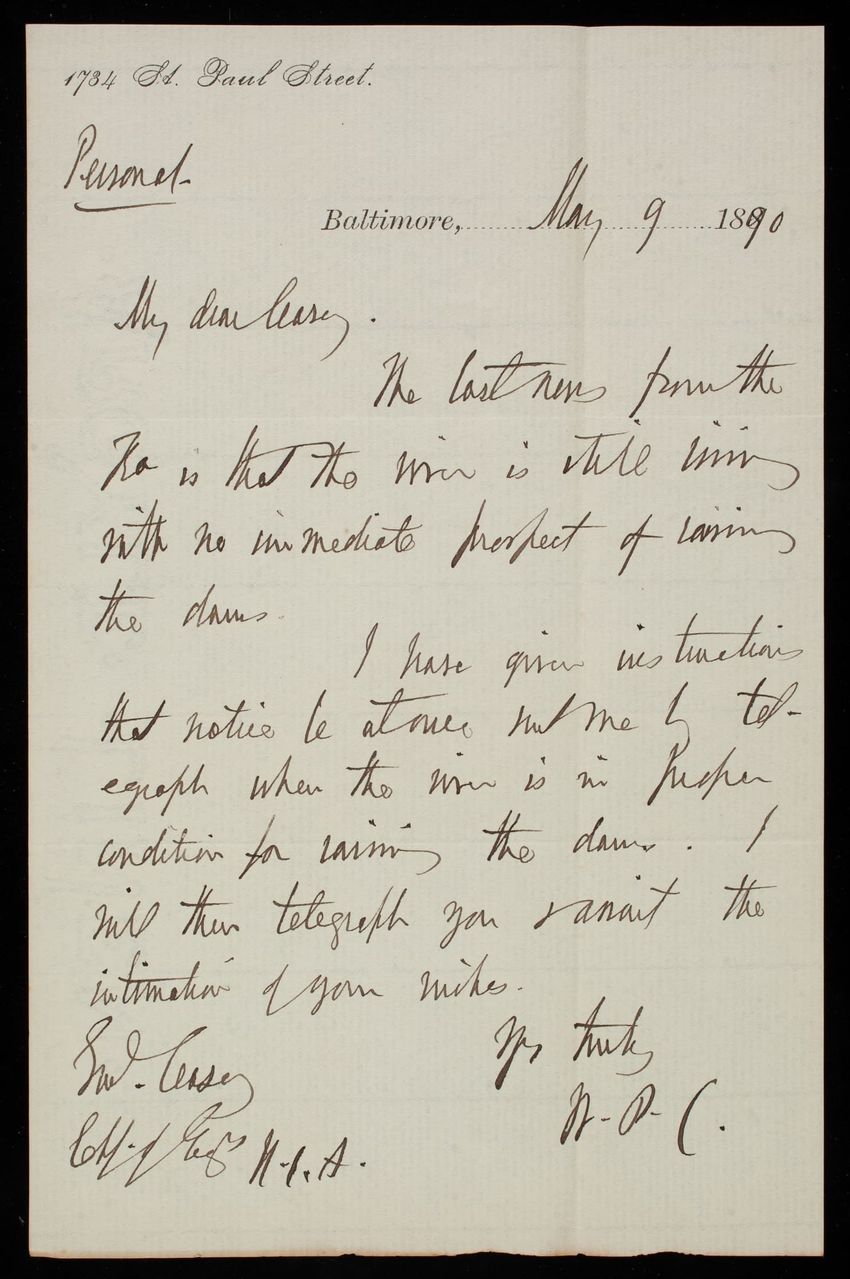 1734 St. Paul Street.
Personal-
Baltimore, May 9 1890
My dear Casey.
The last news from the
is that the river is still rising
with no immediate prospect of raising
the dams.
I have given instructions
that notice be at once sent me by tel-
egraph when the river is in proper
condition for raising the dams. I
will then telegraph you & await the
intimation of your wishes.
Yrs truly
W. P. C.
Genl. Casey
Chf. of Engrs U.S.A.